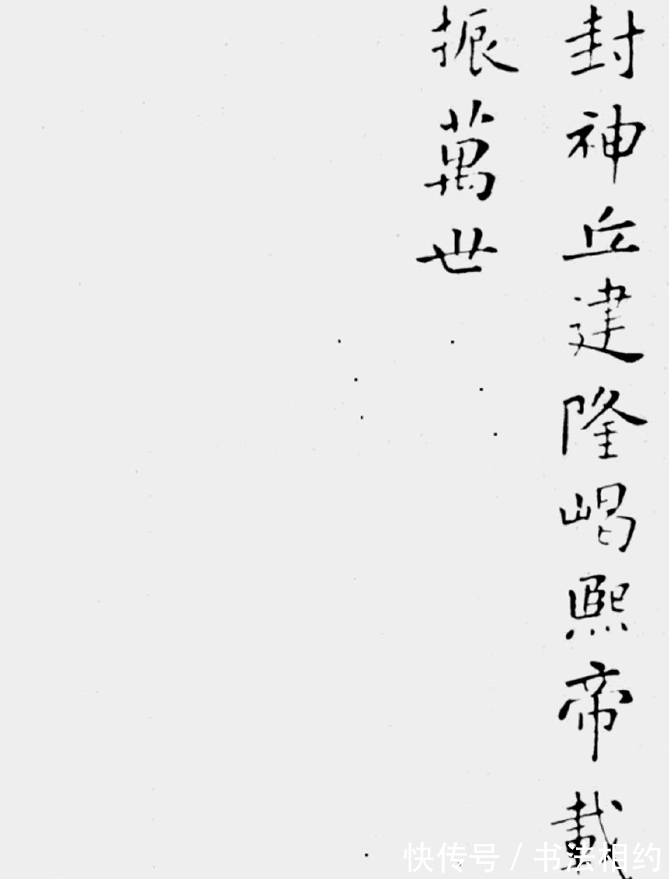 封神丘建隆嵑熙帝載
振萬世
快传号 / 书法相约